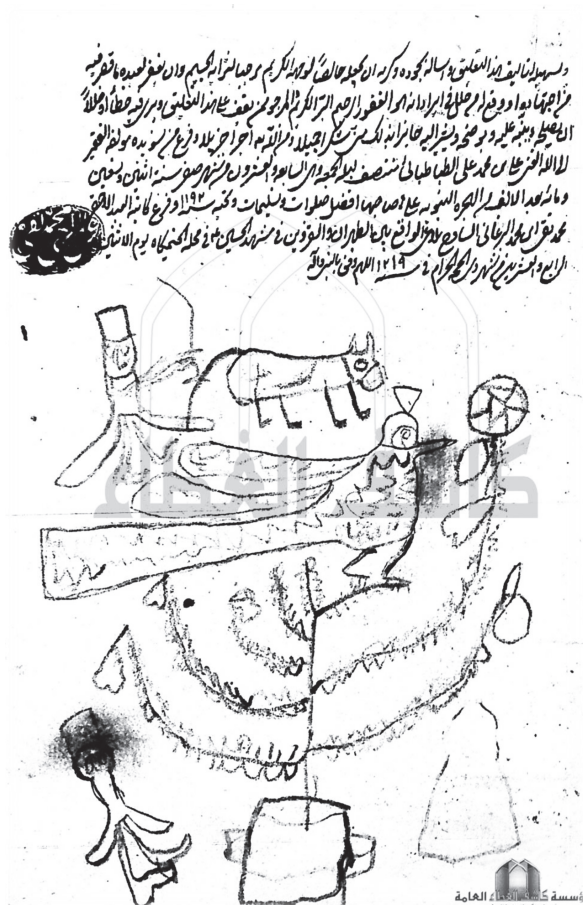 تأليف هذا التعليق وأسأله بجوده وكرمه ان يجعله خالصاً لوجهه الكريم موجباً لثوابه الجسيم وان يغفر لعبده ما قصر فيه
من اجتهاده او وقع له من خلل في ايراده انه هو الغفور الرحيم البر الكريم والمرجو لمن يقف على هذا التعليق ويرى فيه خطأ او خللاً
ان يصلحه وينبه عليه ويوضحه ويشير اليه حائزاً بذلك مني شكراً جميلاً ومن الله اجراً جزيلاً وفرغ من تسويده مؤلفه الفقير
الى الله الغني علي بن محمد علي الطباطبائي منتصف ليلة الجمعة وهي السابعة والعشرون من شهر صفر سنة اثنتين وتسعين
ومائة بعد الألف من الهجرة النبوية على صاحبها افضل صلوات وتسليمات وتحية سنة ١١٩٢ وفرغ كاتبه
محمد تقي بن محمد البرغاني الواقع بين الطهران والقزوين في مشهد الحسين في محلة الخيمكاه يوم الاثنين
الرابع والعشرين من شهر ذي الحجة الحرام في سنة ١٢١٩ اللهم
كاشف الغطاء
مؤسسة كاشف الغطاء العامة